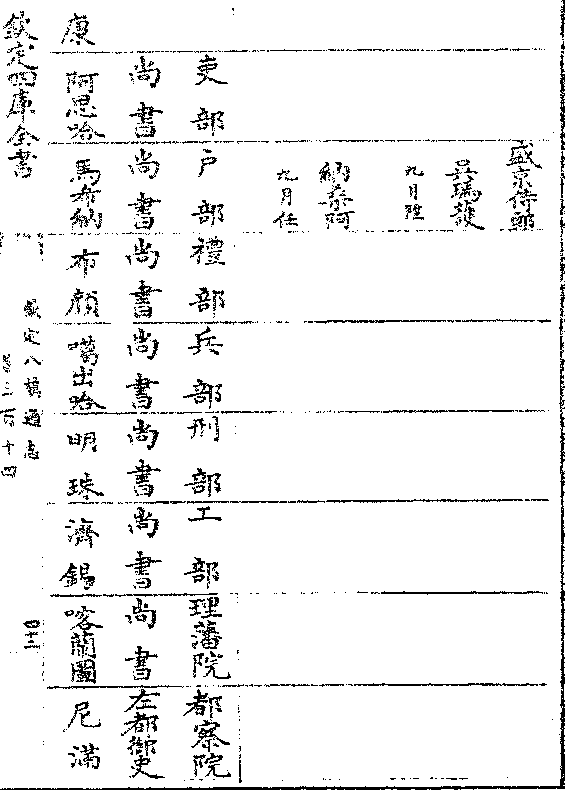 盛京侍郎
吳瑪護
九月陞
納泰阿
九月任
吏部 戶部 禮部 兵部 刑部 工部 理藩院 都察院
尚書 尚書 尚書 尚書 尚書 尚書 尚書 左都御史
康 阿思哈 馬布納 布顔 噶出哈 明珠 濟錫 喀蘭圖 尼滿
欽定四庫全書
欽定八旗通志
卷三百十四
四十三